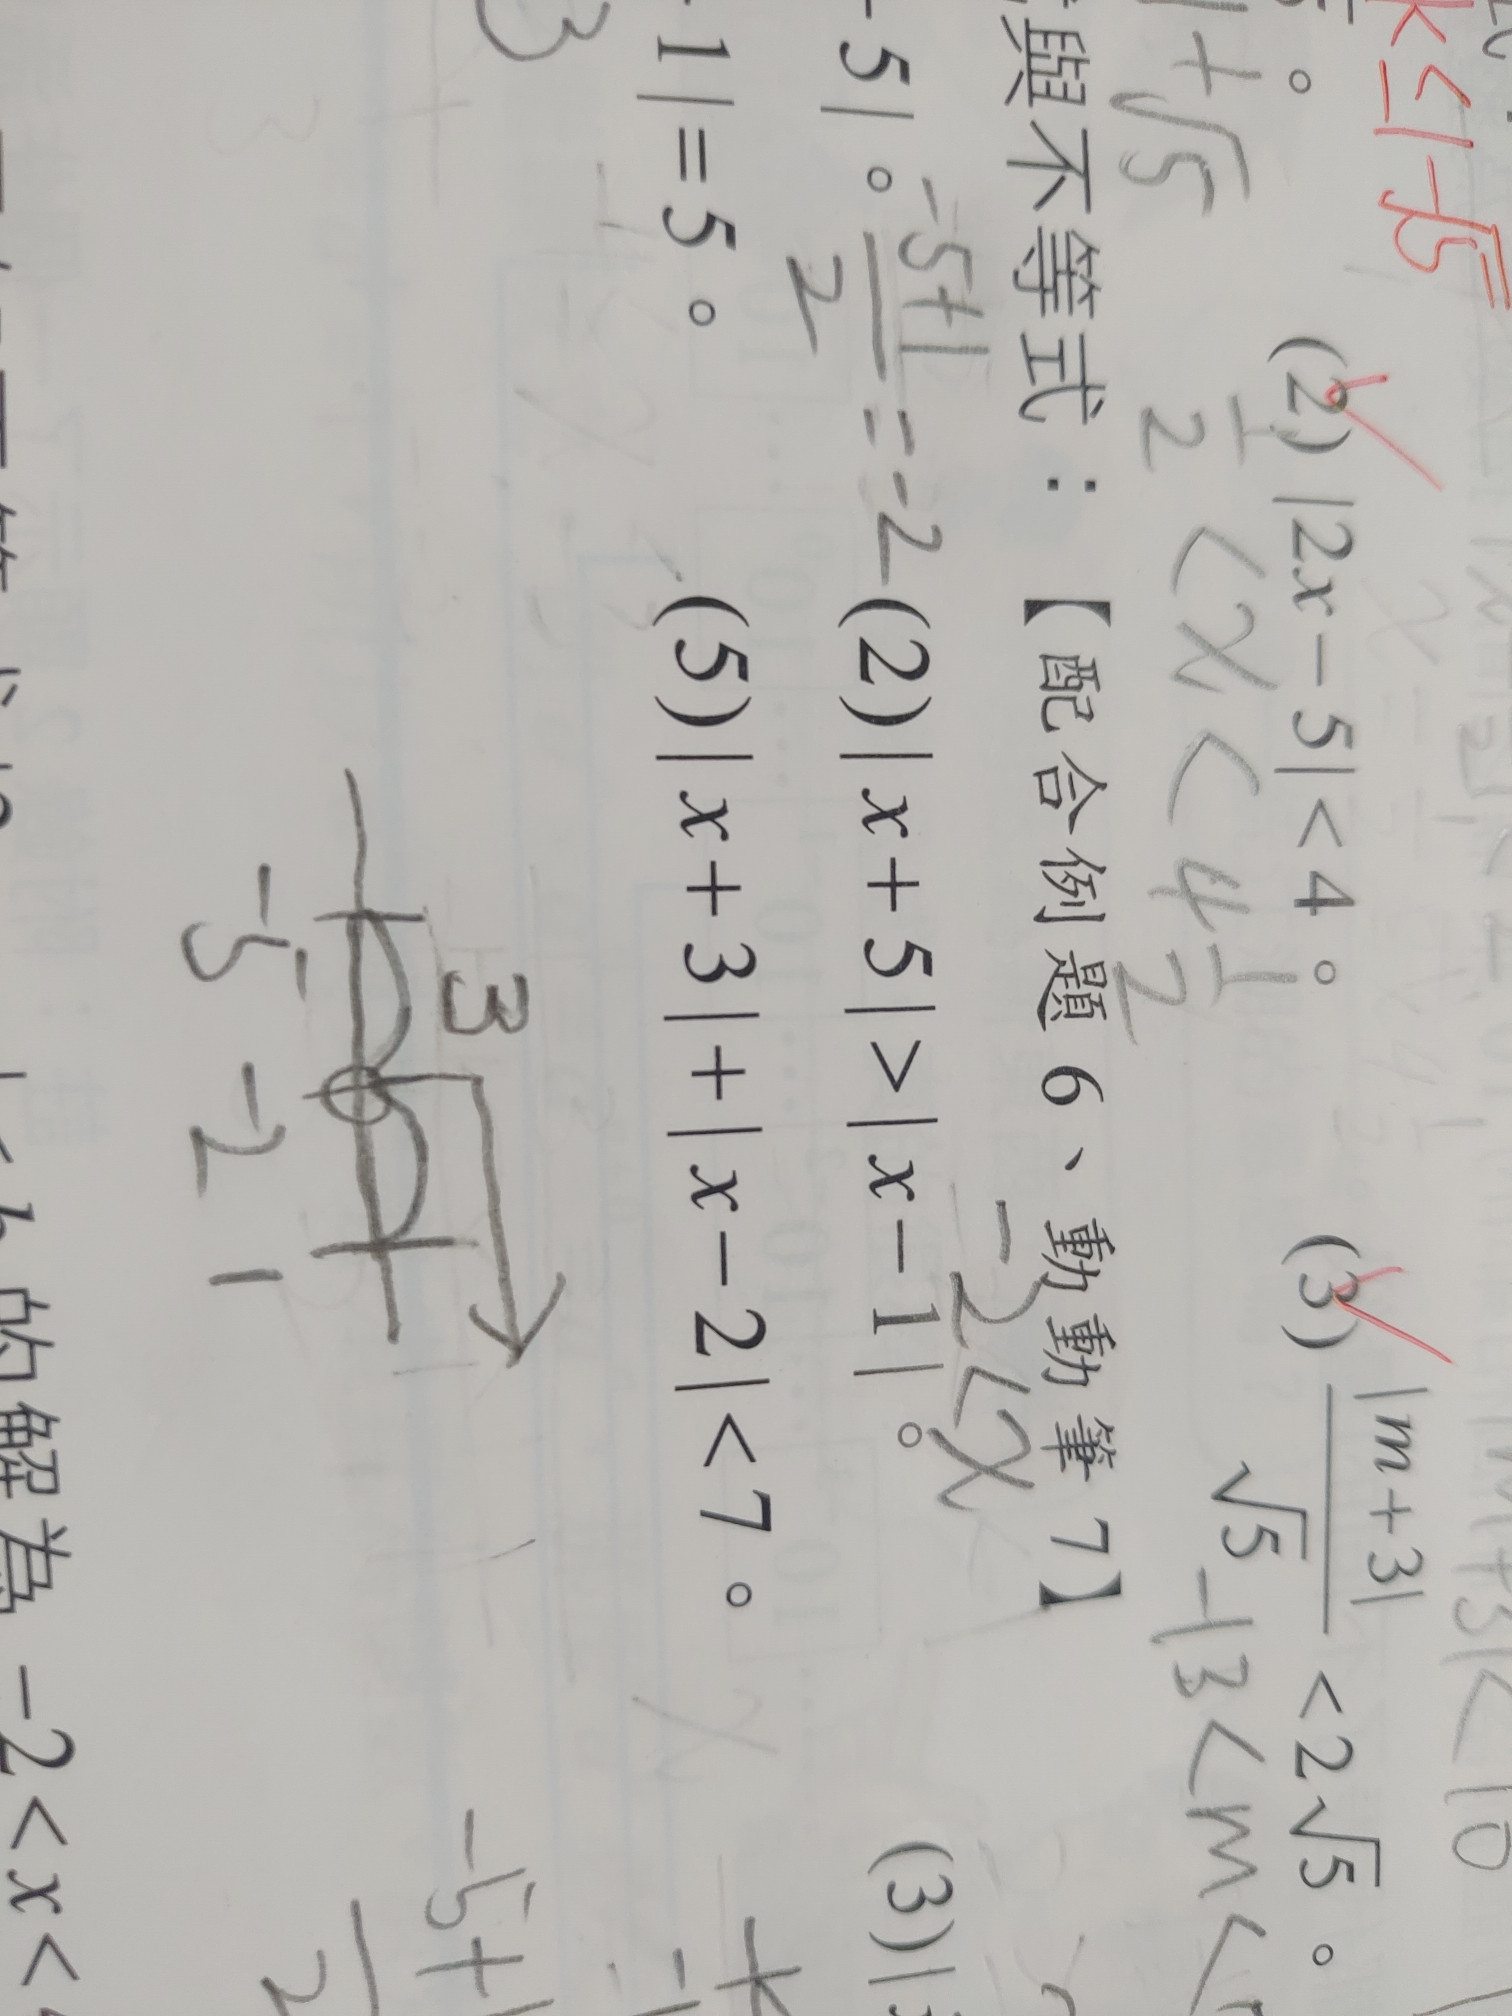 k≤1-√5
|m+3|<10
1+√5 。 (2) |2x-5|<4 。 (3) |m+3|/√5 <2√5 。
1/2 <x<4 1/2
-13<m<
與不等式：【配合例題 6、動動筆 7】
-5|。 (-5+1)/2 =-2 (2)|x+5|>|x-1|。 (3)|
-2<x
1|=5 。 (5)|x+3|+|x-2|<7 。
3
3
-5 -2 1
-5+
2
的解為 -2<x<